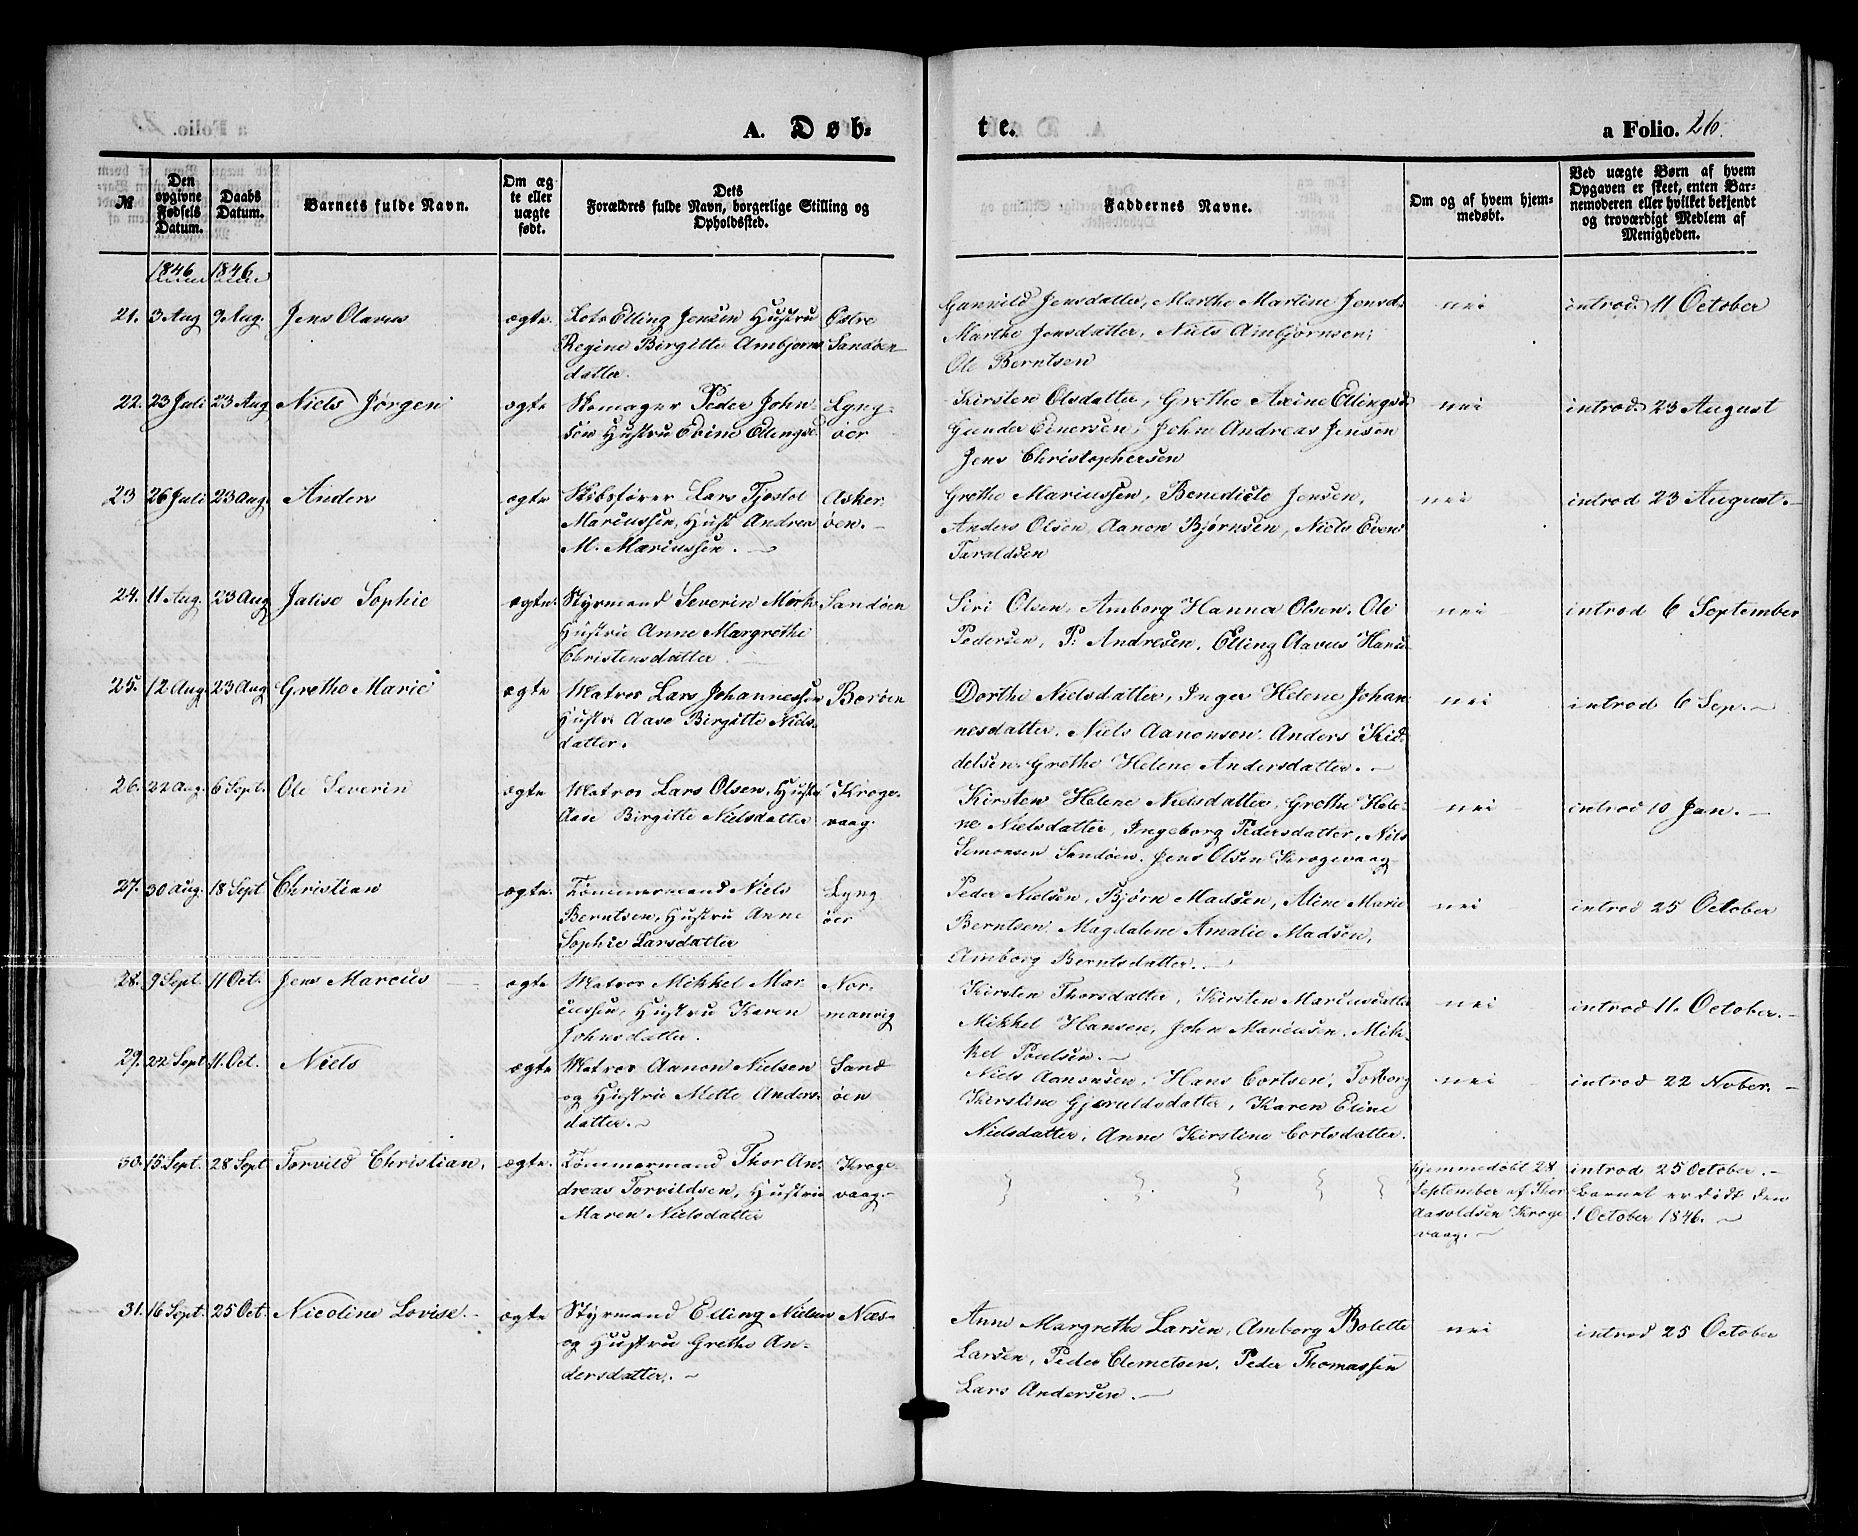 A. Døb-
te.
a Folio. 26.
№
Den opgivne Fødsels Datum.
Daabs Datum.
Barnets fulde Navn.
Om ægte eller uægte født.
Dets Forældres fulde Navn, borgerlige Stilling og Opholdssted.
Faddernes Navne.
Om og af hvem hjemmedøbt.
Ved uægte Børn af hvem Opgaven er skeet, enten Barnemoderen eller hvilket bekjendt og troværdigt Medlem af Menigheden.
1846 1846
21. 3 Aug 9 Aug. Jens Olavus ægte. Lots Elling Jensen Hustru Østre
Regine Birgitte Ambjørns Sandøen
datter.
Gunnild Jensdatter, Marthe Martine Jensd.
Marthe Jensdatter, Niels Ambjørnsen,
Ole Berntsen
nei introd. 11 October
22. 23 Juli 23 Aug Niels Jørgen ægte Skomager Peder John- Lyng-
sen Hustru Edine Ellingsd. øer
Kirsten Olsdatter, Grethe Axine Ellingsd.
Gunder Einersen, John Andreas Jensen
Jens Christophersen
nei introd. 23 August
23 26 Juli 23 Aug. Anders ægte Skibsfører Lars Tjøstol Asker-
Mariussen, Hust Andrea øen.
M. Mariussen.
Grethe Mariussen, Benedicte Jensen,
Anders Olsen, Aanon Bjørnsen, Niels Even
Taraldsen
nei introd 23 August.
24. 11 Aug. 23 Aug Jalise Sophie ægte. Styrmand Severin Mørk Sandøen
Hustru Anne Margrethe
Christensdatter
Siri Olsen, Amborg Hanna Olsen, Ole
Pedersen, P. Andresen, Elling Olavus Hans
nei introd 6 September
25. 12 Aug 23 Aug Grethe Marie ægte Matros Lars Johannessen Borøen
Hustr. Aase Birgitte Niels-
datter.
Dorthe Nielsdatter, Inger Helene Johan-
nesdatter. Niels Aanonsen. Anders Kid-
delsen. Grethe Helene Andersdatter.
nei introd 6 Sep.
26. 22 Aug. 6 Sept. Ole Severin ægte Matros Lars Olsen, Hustru Kroge-
Aase Birgitte Nielsdatter vaag.
Kirsten Helene Nielsdatter, Grethe Hele-
ne Nielsdatter, Ingeborg Pedersdatter, Nils
Simonsen Sandøen, Jens Olsen Krogevaag
nei introd 10 Jan.
27. 30 Aug. 18 Sept Christian ægte. Tømmermand Niels Lyng
Berntsen, Hustru Anne øer
Sophie Larsdatter
Peder Nielsen, Bjørn Madsen, Aline Marie
Berntsen, Magdalene Amalie Madsen,
Amborg Berntsdatter.
nei introd 25 October
28. 9 Sept. 11 Oct. Jens Marcus ægte Matros Mikkel Mar- Nor-
iussen, Hustru Karen manvig
Johnsdatter.
Kirsten Thorsdatter, Kirsten Mariusdatter
Mikkel Hansen, John Mariusen, Mik-
kel Poulsen.
nei introd 11. October.
29. 22 Sept 11 Oct. Niels ægte Matros Aanon Nielsen Sand
og Hustru Mette Anders- øen
datter.
Niels Aanonsen, Hans Cortsen, Torborg
Kirstine Gjeruldsdatter, Karen Eline
Nielsdatter, Anne Kirstine Cortsdatter.
nei introd 22 Nober.
30. 15 Sept. 28 Sept Torvild Christian. ægte. Tømmermand Thor An- Kroge-
dreas Torvildsen, Hustru vaag.
Maren Nielsdatter
Hjemmedøbt 28
September af Thor
Aasoldsen Kroge
vaag.
introd 25 October.
Barnet er dødt den
1 October 1846.
31. 16 Sept. 25 Oct. Nicoline Lovise. ægte Styrmand Elling Nielsen Næs
og Hustru Grethe An-
dersdatter.
Anne Margrethe Larsen, Amborg Bolette
Larsen, Peder Clemetsen, Peder Thomassen
Lars Andersen.
nei introd 25 October